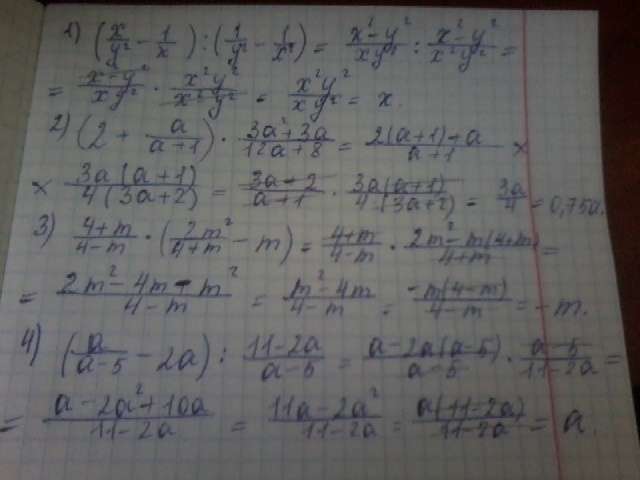 1) (x/y² - 1/x) : (1/y² - 1/x²) = x² - y²/xy² : x² - y²/x²y² =
= x² - y²/xy² · x²y²/x² - y² = x²y²/xy² = x.
2) (2 + a/a+1) · 3a²+3a/12a+8 = 2(a+1)+a/a+1 ×
× 3a(a+1)/4(3a+2) = 3a+2/a+1 · 3a(a+1)/4(3a+2) = 3a/4 = 0,75a.
3) 4+m/4-m · (2m²/4+m - m) = 4+m/4-m · 2m²-m(4+m)/4+m =
= 2m²-4m-m²/4-m = m²-4m/4-m = -m(4-m)/4-m = -m.
4) (a/a-5 - 2a) : 11-2a/a-5 = a-2a(a-5)/a-5 · a-5/11-2a =
= a-2a²+10a/11-2a = 11a-2a²/11-2a = a(11-2a)/11-2a = a.